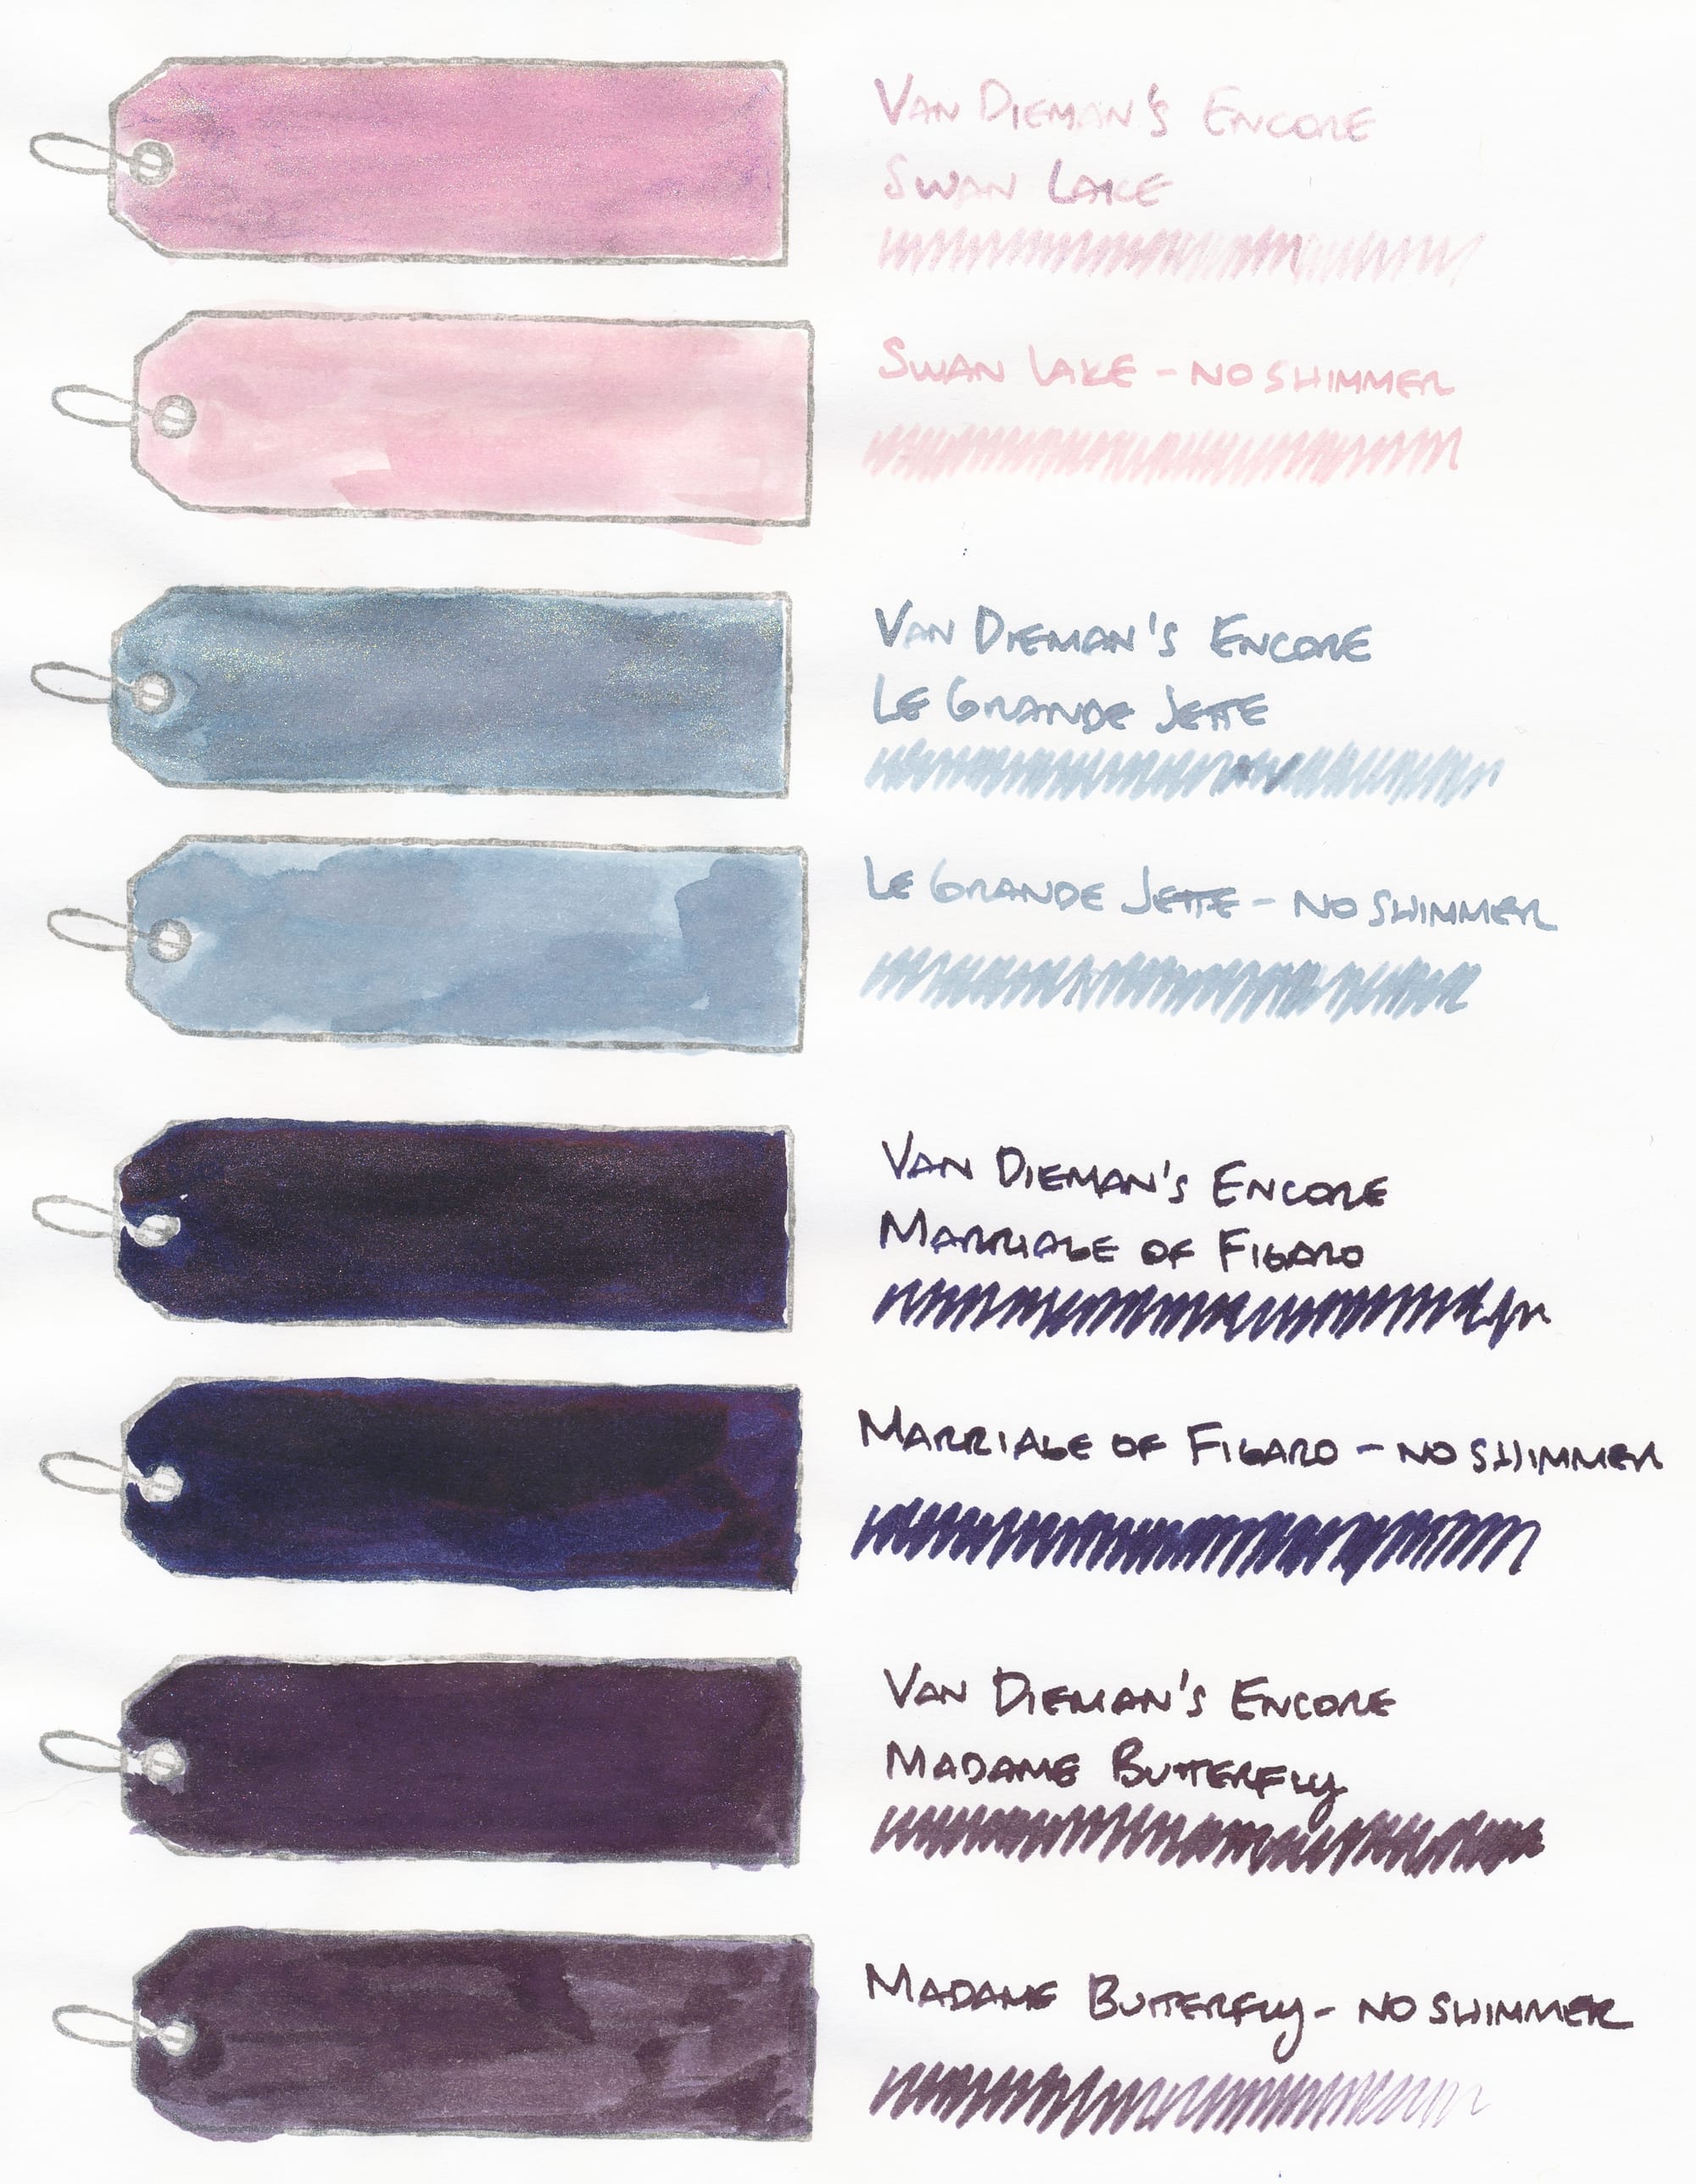 VAN DIEMAN'S ENCORE
SWAN LAKE
SWAN LAKE - NO SHIMMER
VAN DIEMAN'S ENCORE
LE GRANDE JETTE
LE GRANDE JETTE - NO SHIMMER
VAN DIEMAN'S ENCORE
MARRIAGE OF FIGARO
MARRIAGE OF FIGARO - NO SHIMMER
VAN DIEMAN'S ENCORE
MADAME BUTTERFLy
MADAME BUTTERFLy - NO SHIMMER